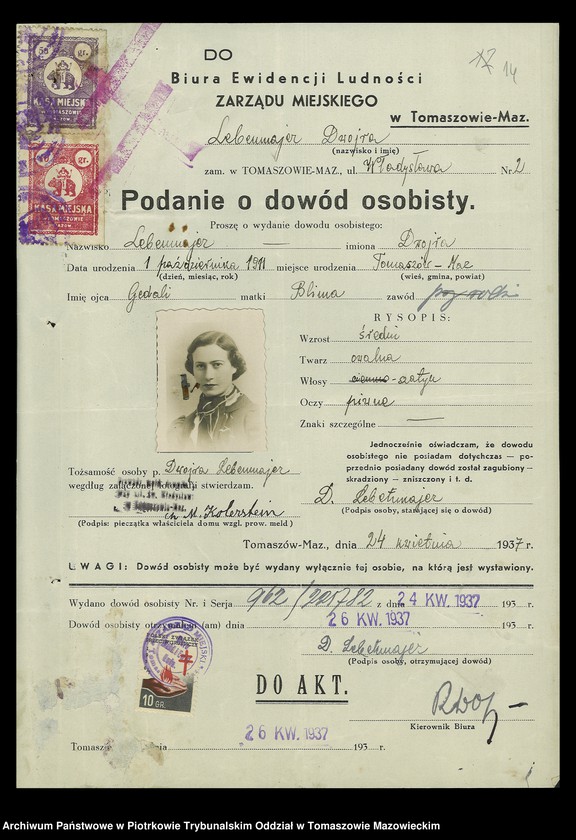 DO
Biura Ewidencji Ludności
ZARZĄDU MIEJSKIEGO
w Tomaszowie-Maz.
14
50 gr.
KASA MIEJSK
gr.
KASA MIEJSKA
Lebenmajer Dwojra
(nazwisko i imię)
zam. w TOMASZOWIE-MAZ., ul. Władysława Nr. 2
Podanie o dowód osobisty.
Proszę o wydanie dowodu osobistego:
Nazwisko Lebenmajer imiona Dwojra
Data urodzenia 1 października 1911 miejsce urodzenia Tomaszów-Maz
(dzień, miesiąc, rok) (wieś, gmina, powiat)
Imię ojca Gedali matki Blima zawód
RYSOPIS:
Wzrost średni
Twarz owalna
Włosy ciemno-
Oczy piwne
Znaki szczególne —
Jednocześnie oświadczam, że dowodu
osobistego nie posiadam dotychczas — po-
przednio posiadany dowód został zagubiony -
skradziony - zniszczony i t. d.
Tożsamość osoby p. Dwojra Lebenmajer
według załączonej fotografii stwierdzam.
Ch M. Kolerstein
(Podpis: pieczątka właściciela domu wzgl. prow. meld)
D. Lebetmajer
(Podpis osoby, starającej się o dowód)
Tomaszów-Maz., dnia 24 kwietnia 1937 r.
UWAGI: Dowód osobisty może być wydany wyłącznie tej osobie, na którą jest wystawiony.
Wydano dowód osobisty Nr. i Serja 962/201782 z dnia 24 KW. 1937 193 r.
Dowód osobisty otrzymałem (am) dnia 26 KW. 1937 193 r.
D. Lebetmajer
(Podpis osoby, otrzymującej dowód)
10 GR.
DO AKT.
Kierownik Biura
26 KW. 1937
Tomaszów dnia 193 r.
Archiwum Państwowe w Piotrkowie Trybunalskim Oddział w Tomaszowie Mazowieckim